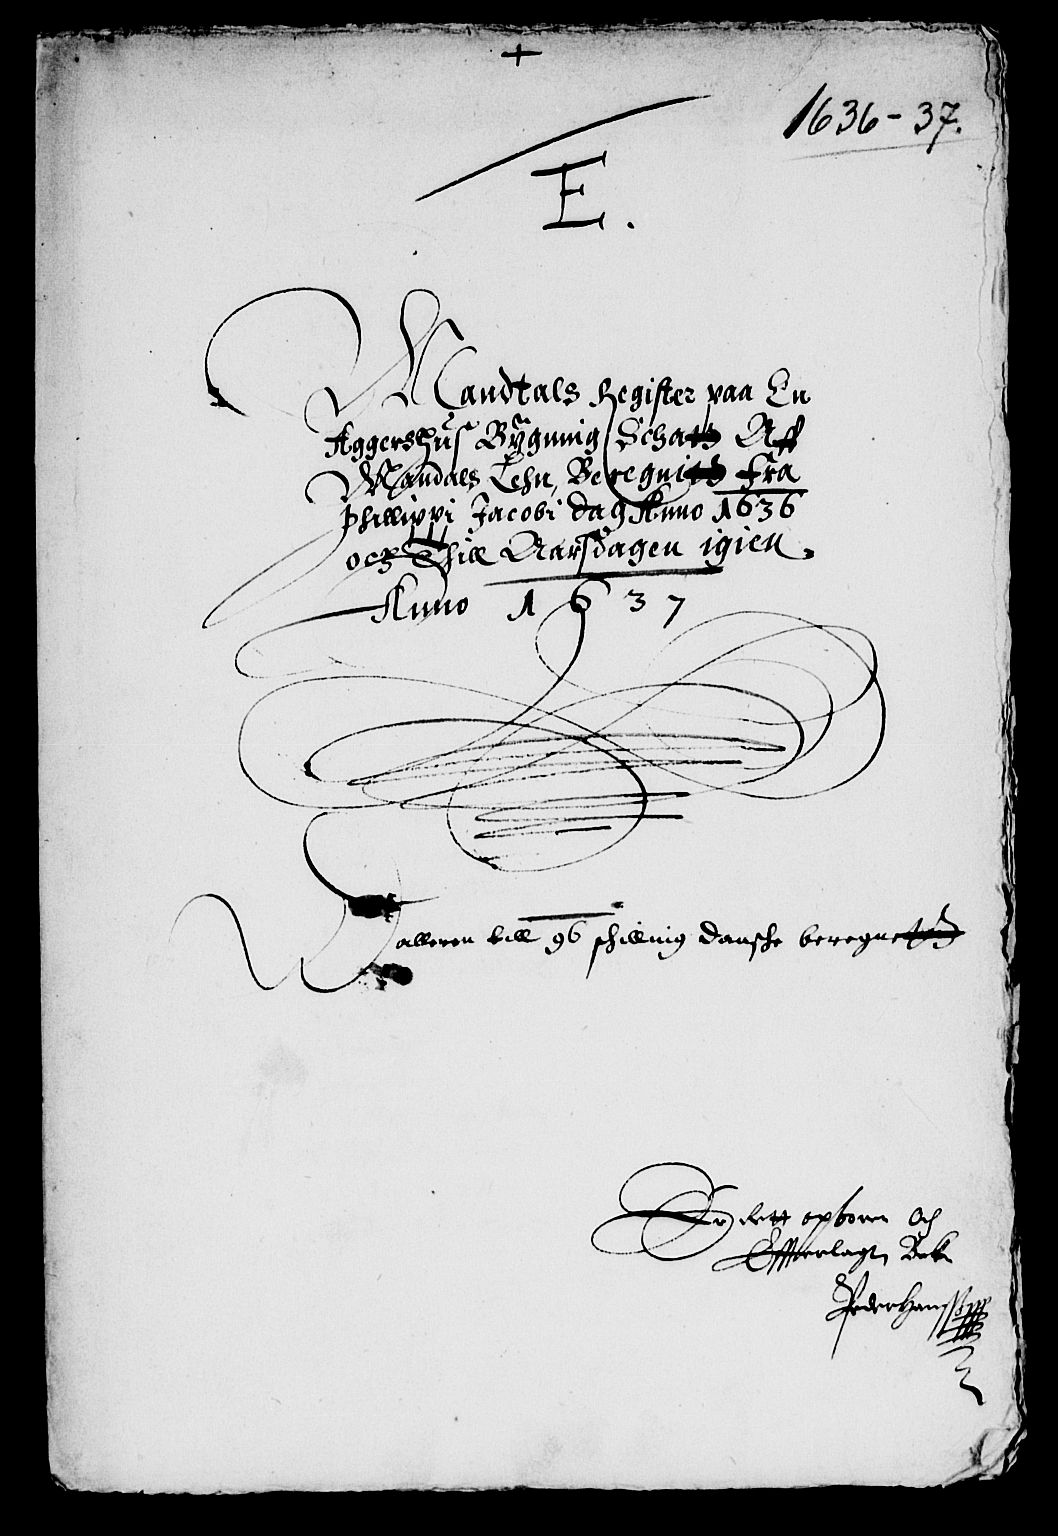 1636-37.
E.
Mandtals Register paa En
Aggershus Bÿgning Schatt Aff
Mandals Lehn, Beregnitt Fra
Phillippi Jacobi dag Anno 1636
och Thill Aarsdagen igien
Anno 1637
Dalleren till 96 schilling dansche beregnett
Er rett opboren Och
Peder Hanssøn